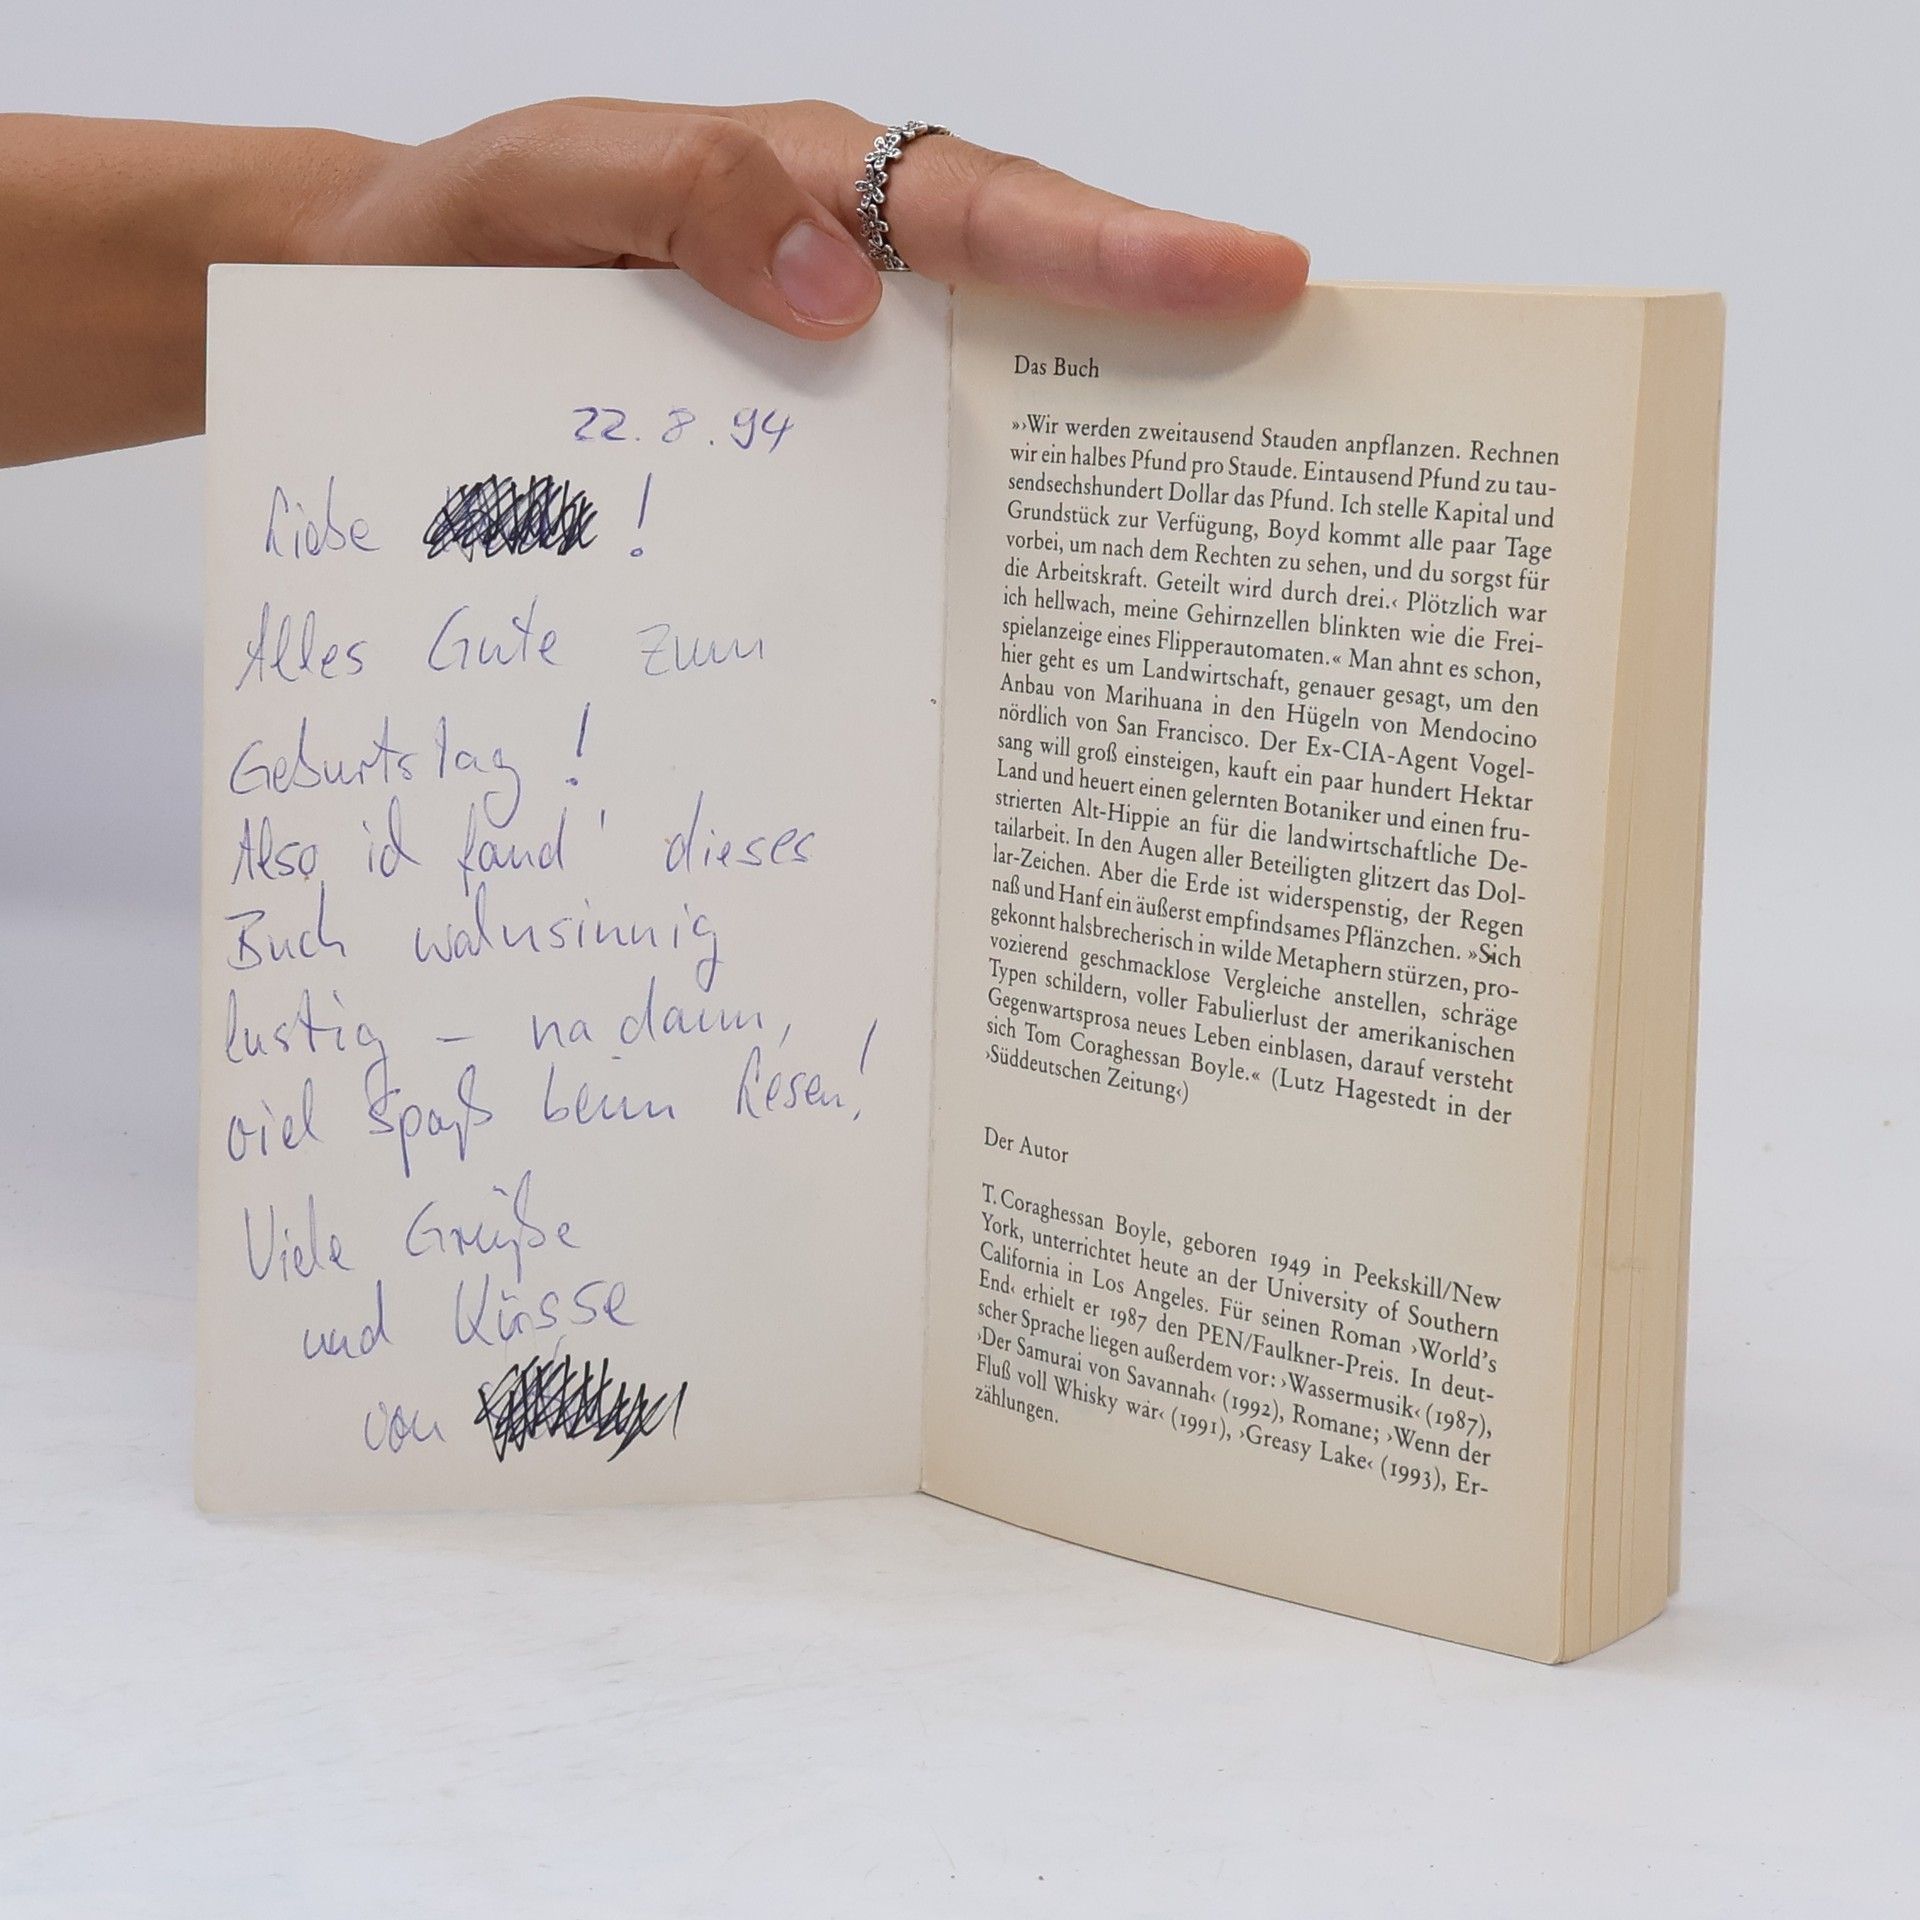 22.8.94
Liebe !
Alles Gute zum
Geburtstag !
Also ich fand' dieses
Buch wahnsinnig
lustig – na dann,
viel Spaß beim Lesen!
Viele Grüße
und Küsse
von
Das Buch
»›Wir werden zweitausend Stauden anpflanzen. Rechnen
wir ein halbes Pfund pro Staude. Eintausend Pfund zu tau-
sendsechshundert Dollar das Pfund. Ich stelle Kapital und
Grundstück zur Verfügung, Boyd kommt alle paar Tage
vorbei, um nach dem Rechten zu sehen, und du sorgst für
die Arbeitskraft. Geteilt wird durch drei.‹ Plötzlich war
ich hellwach, meine Gehirnzellen blinkten wie die Frei-
spielanzeige eines Flipperautomaten.« Man ahnt es schon,
hier geht es um Landwirtschaft, genauer gesagt, um den
Anbau von Marihuana in den Hügeln von Mendocino
nördlich von San Francisco. Der Ex-CIA-Agent Vogel-
sang will groß einsteigen, kauft ein paar hundert Hektar
Land und heuert einen gelernten Botaniker und einen fru-
strierten Alt-Hippie an für die landwirtschaftliche De-
tailarbeit. In den Augen aller Beteiligten glitzert das Dol-
lar-Zeichen. Aber die Erde ist widerspenstig, der Regen
naß und Hanf ein äußerst empfindsames Pflänzchen. »Sich
gekonnt halsbrecherisch in wilde Metaphern stürzen, pro-
vozierend geschmacklose Vergleiche anstellen, schräge
Typen schildern, voller Fabulierlust der amerikanischen
Gegenwartsprosa neues Leben einblasen, darauf versteht
sich Tom Coraghessan Boyle.« (Lutz Hagestedt in der
›Süddeutschen Zeitung‹)
Der Autor
T. Coraghessan Boyle, geboren 1949 in Peekskill/New
York, unterrichtet heute an der University of Southern
California in Los Angeles. Für seinen Roman ›World's
End‹ erhielt er 1987 den PEN/Faulkner-Preis. In deut-
scher Sprache liegen außerdem vor: ›Wassermusik‹ (1987),
›Der Samurai von Savannah‹ (1992), Romane; ›Wenn der
Fluß voll Whisky wär‹ (1991), ›Greasy Lake‹ (1993), Er-
zählungen.